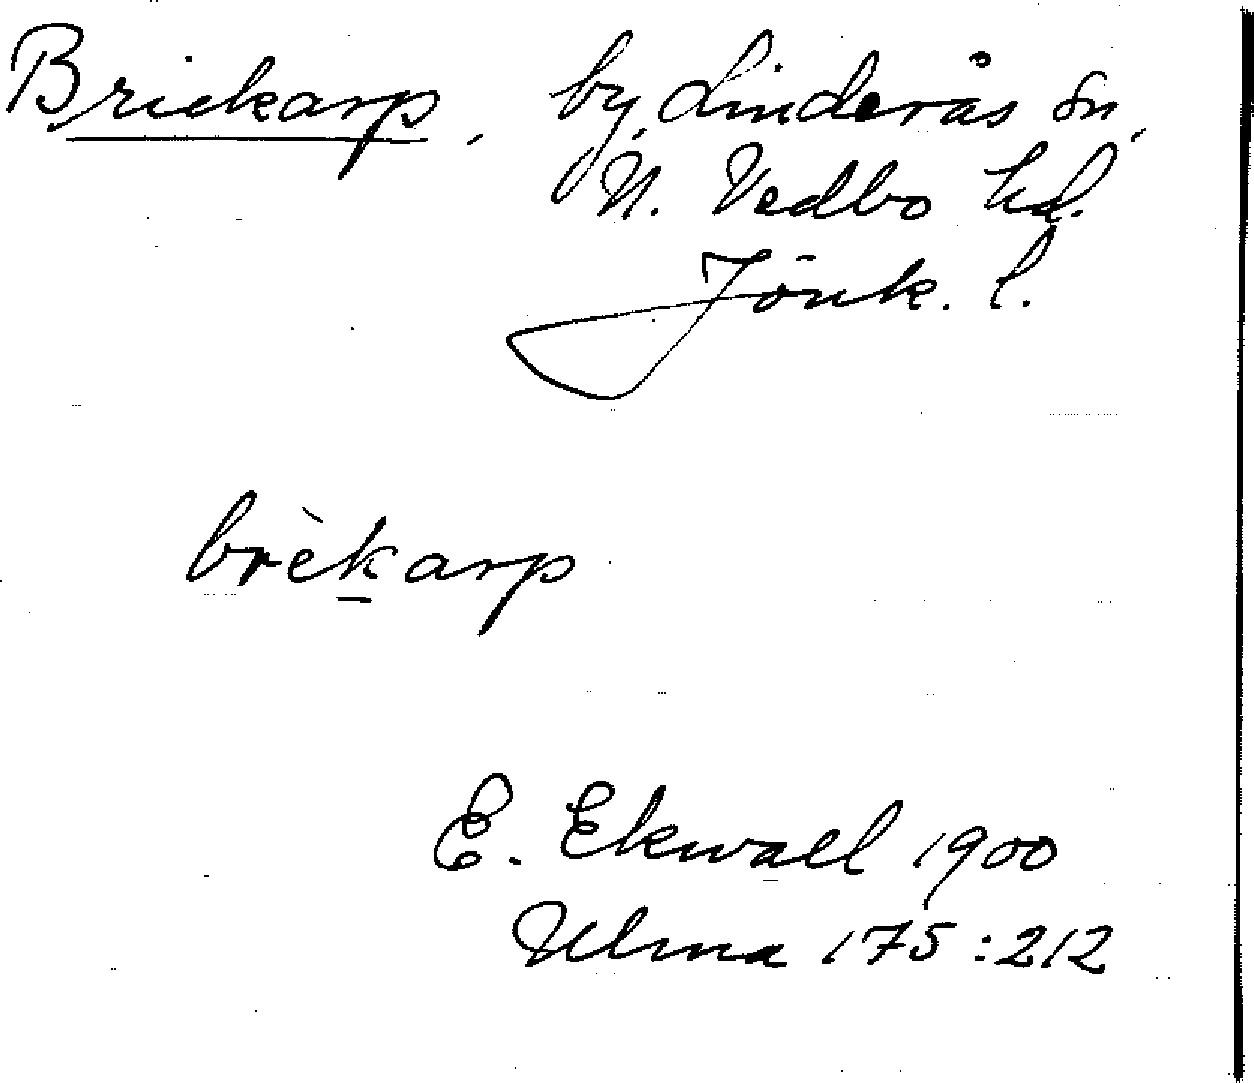 Briekarp, by, Linderås sn,
N. Vedbo hd.
Jönk. l.
brèkarp
E. Ekwall 1900
Ulma 175:212